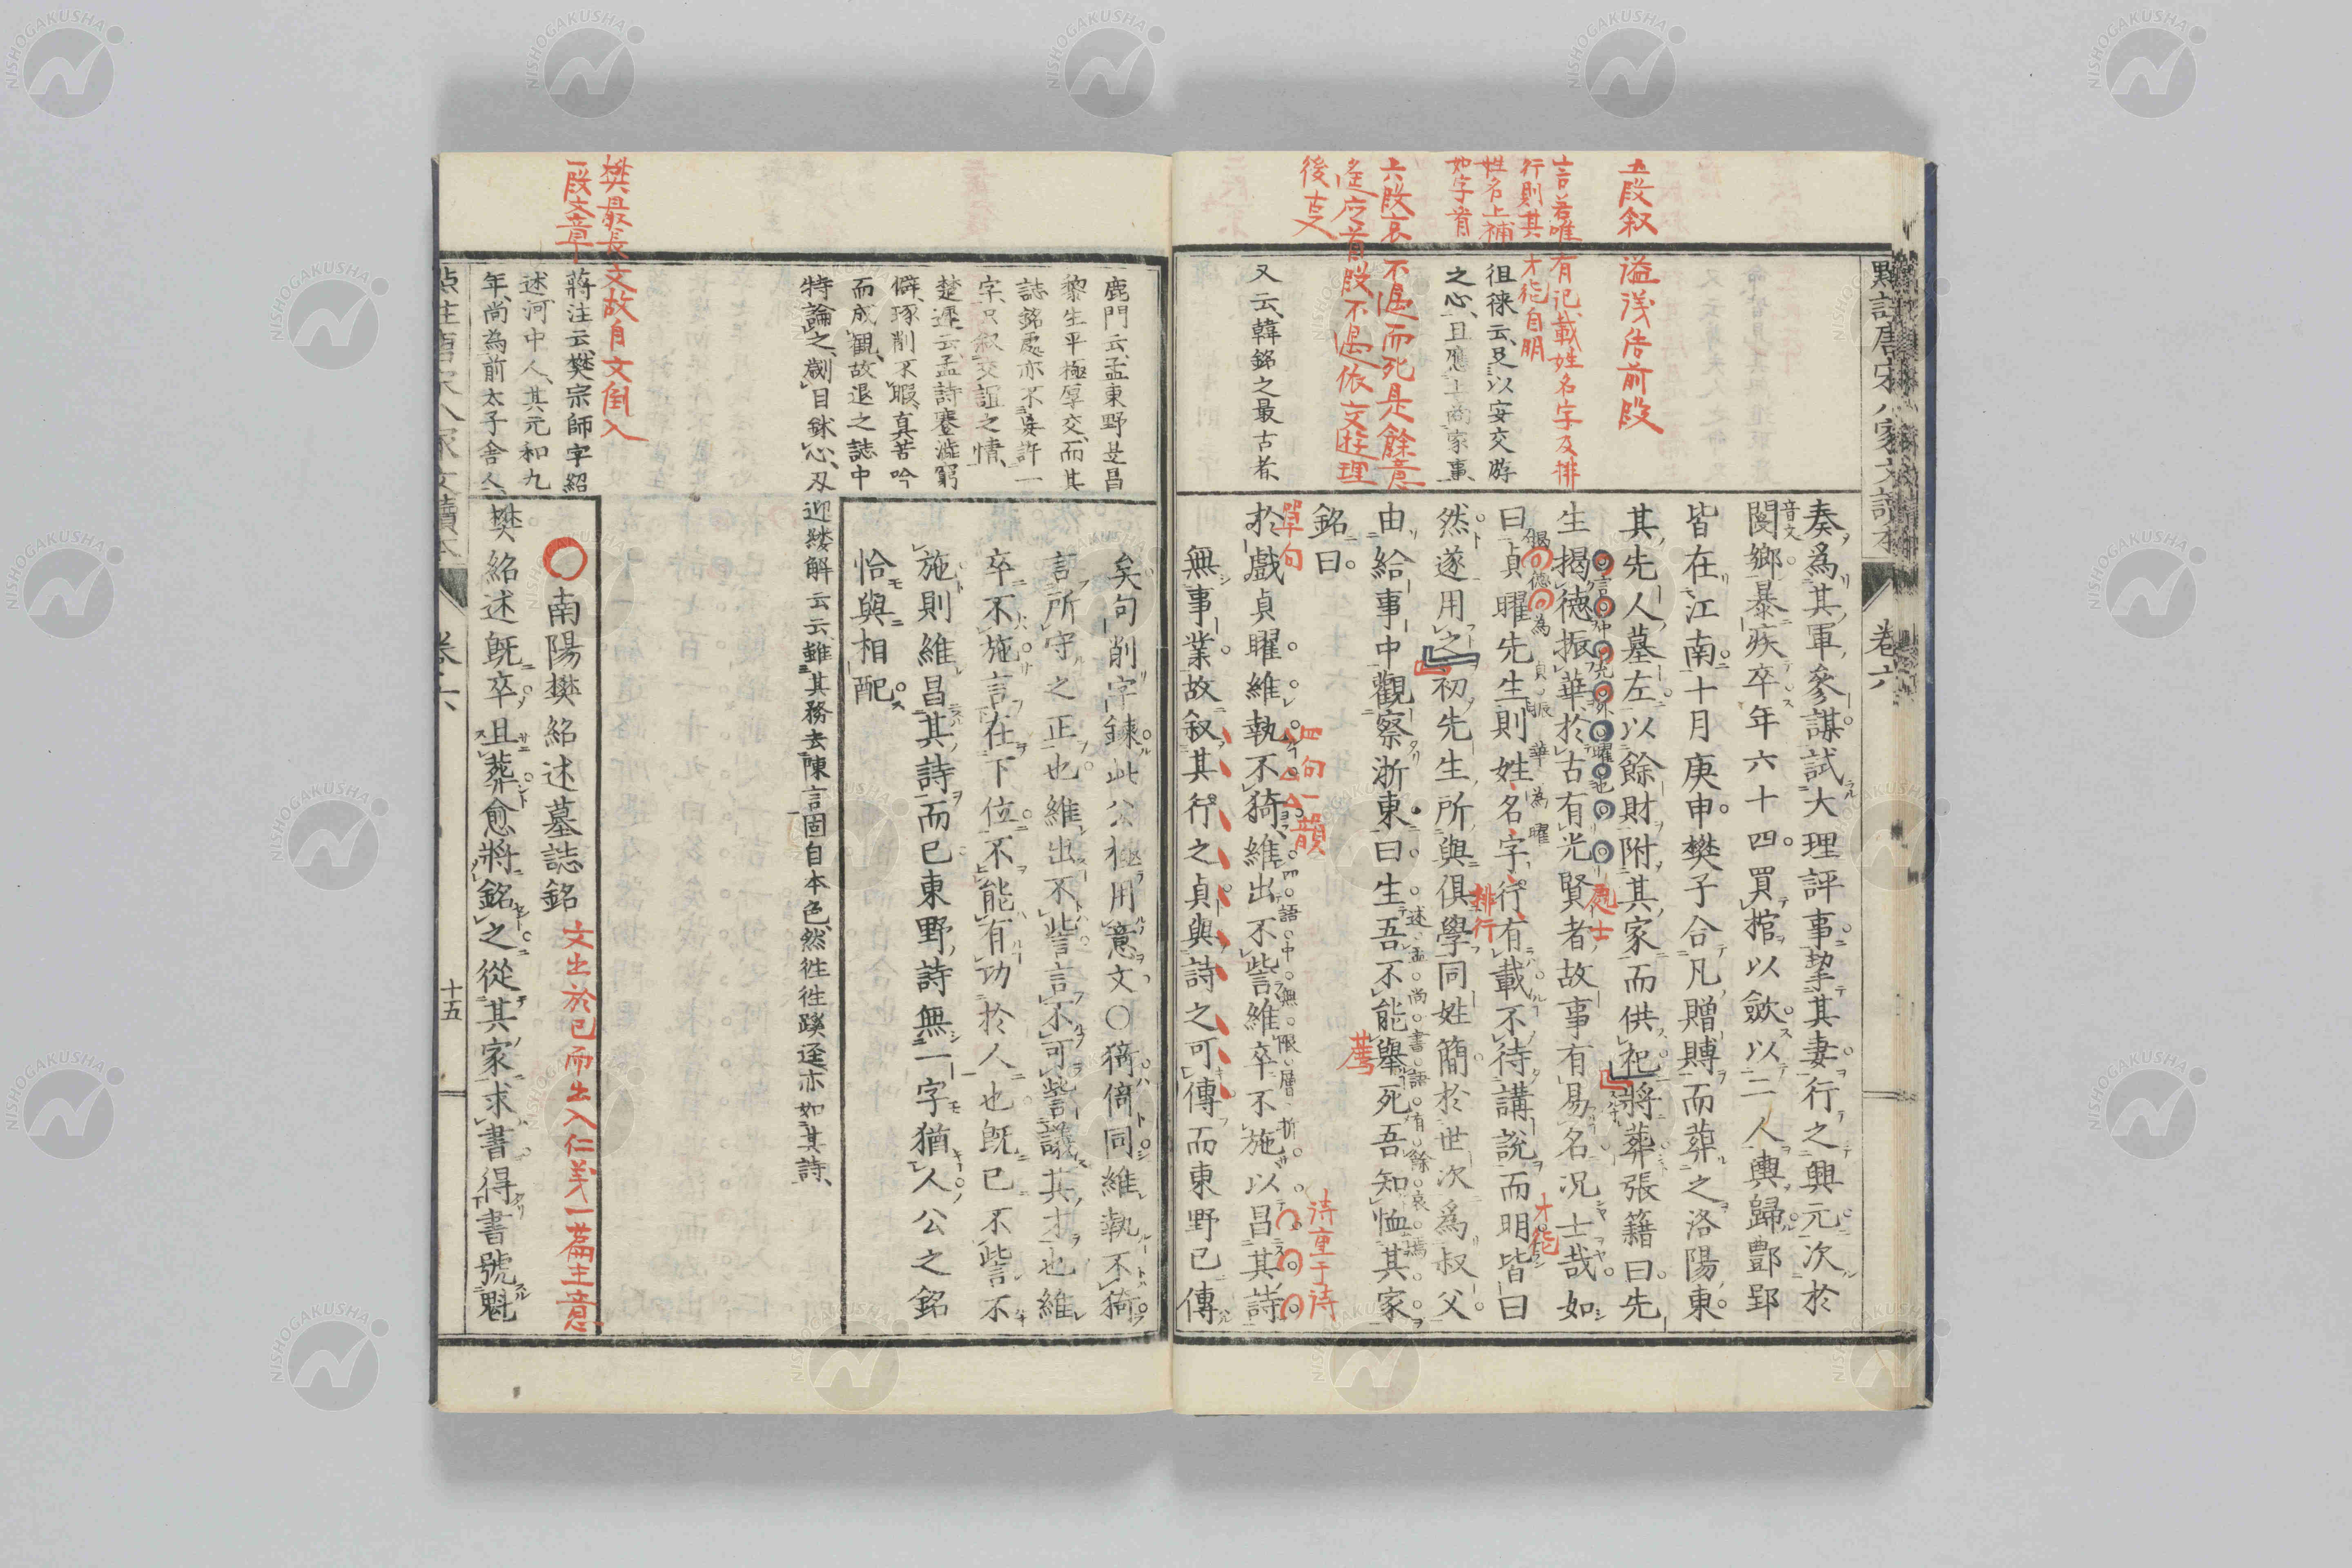 卷六
五段叙謚淺告前段
言若唯有記載姓名字及排
行則其才能自明
姓名上補
如字育
徂徠云足以安交游
之心且應上尚家事
六段哀不遇而死是餘意
遙应首段不遇依交遊理
後支
又云韓銘之最古者
奏爲其軍參謀試大理評事挈其妻行之興元次於
閿鄉暴疾卒年六十四買棺以斂以二人輿歸酆郢
音文
皆在江南十月庚申樊子合凡贈賻而葬之洛陽東
其先人墓左以餘財附其家而供祀將葬張籍曰先
生揭德振華於古有光賢者故事有易名況士哉如
處士
曰貞曜先生則姓名字行有載不待講說而明皆曰
排行
才能
然遂用之初先生所與俱學同姓簡於世次爲叔父
由給事中觀察浙東曰生吾不能舉死吾知恤其家
薦
銘曰
單句
四句一韻
於戲貞曜維執不猗維出不訾維卒不施以昌其詩
無事業故叙其行之貞與詩之可傳而東野已傳
鹿門云孟東野是昌
黎生平極厚交而其
誌銘處亦不妄許一
字只叙交誼之情
楚運云孟詩蹇澁窮
僻琢削不暇真苦吟
而成觀故退之誌中
特論之劌目鉥心刃迎縷解云云雖其務去陳言固自本色然徃徃蹊逕亦如其詩
矣句削字鍊此公極用意文○猗倚同維執不猗
言所守之正也維出不訾言不可訾議其才也維
卒不施言在下位不能有功於人也旣已不訾不
施則維昌其詩而已東野詩無一字猶人公之銘
恰與相配
樊最長文故自文倒入
一段文章
蔣注云樊宗師字紹
述河中人其元和九
年尚為前太子舍人
南陽樊紹述墓誌銘
文出於己而出入仁義一篇主意
樊紹述旣卒且葬愈將銘之從其家求書得書號魁
十五